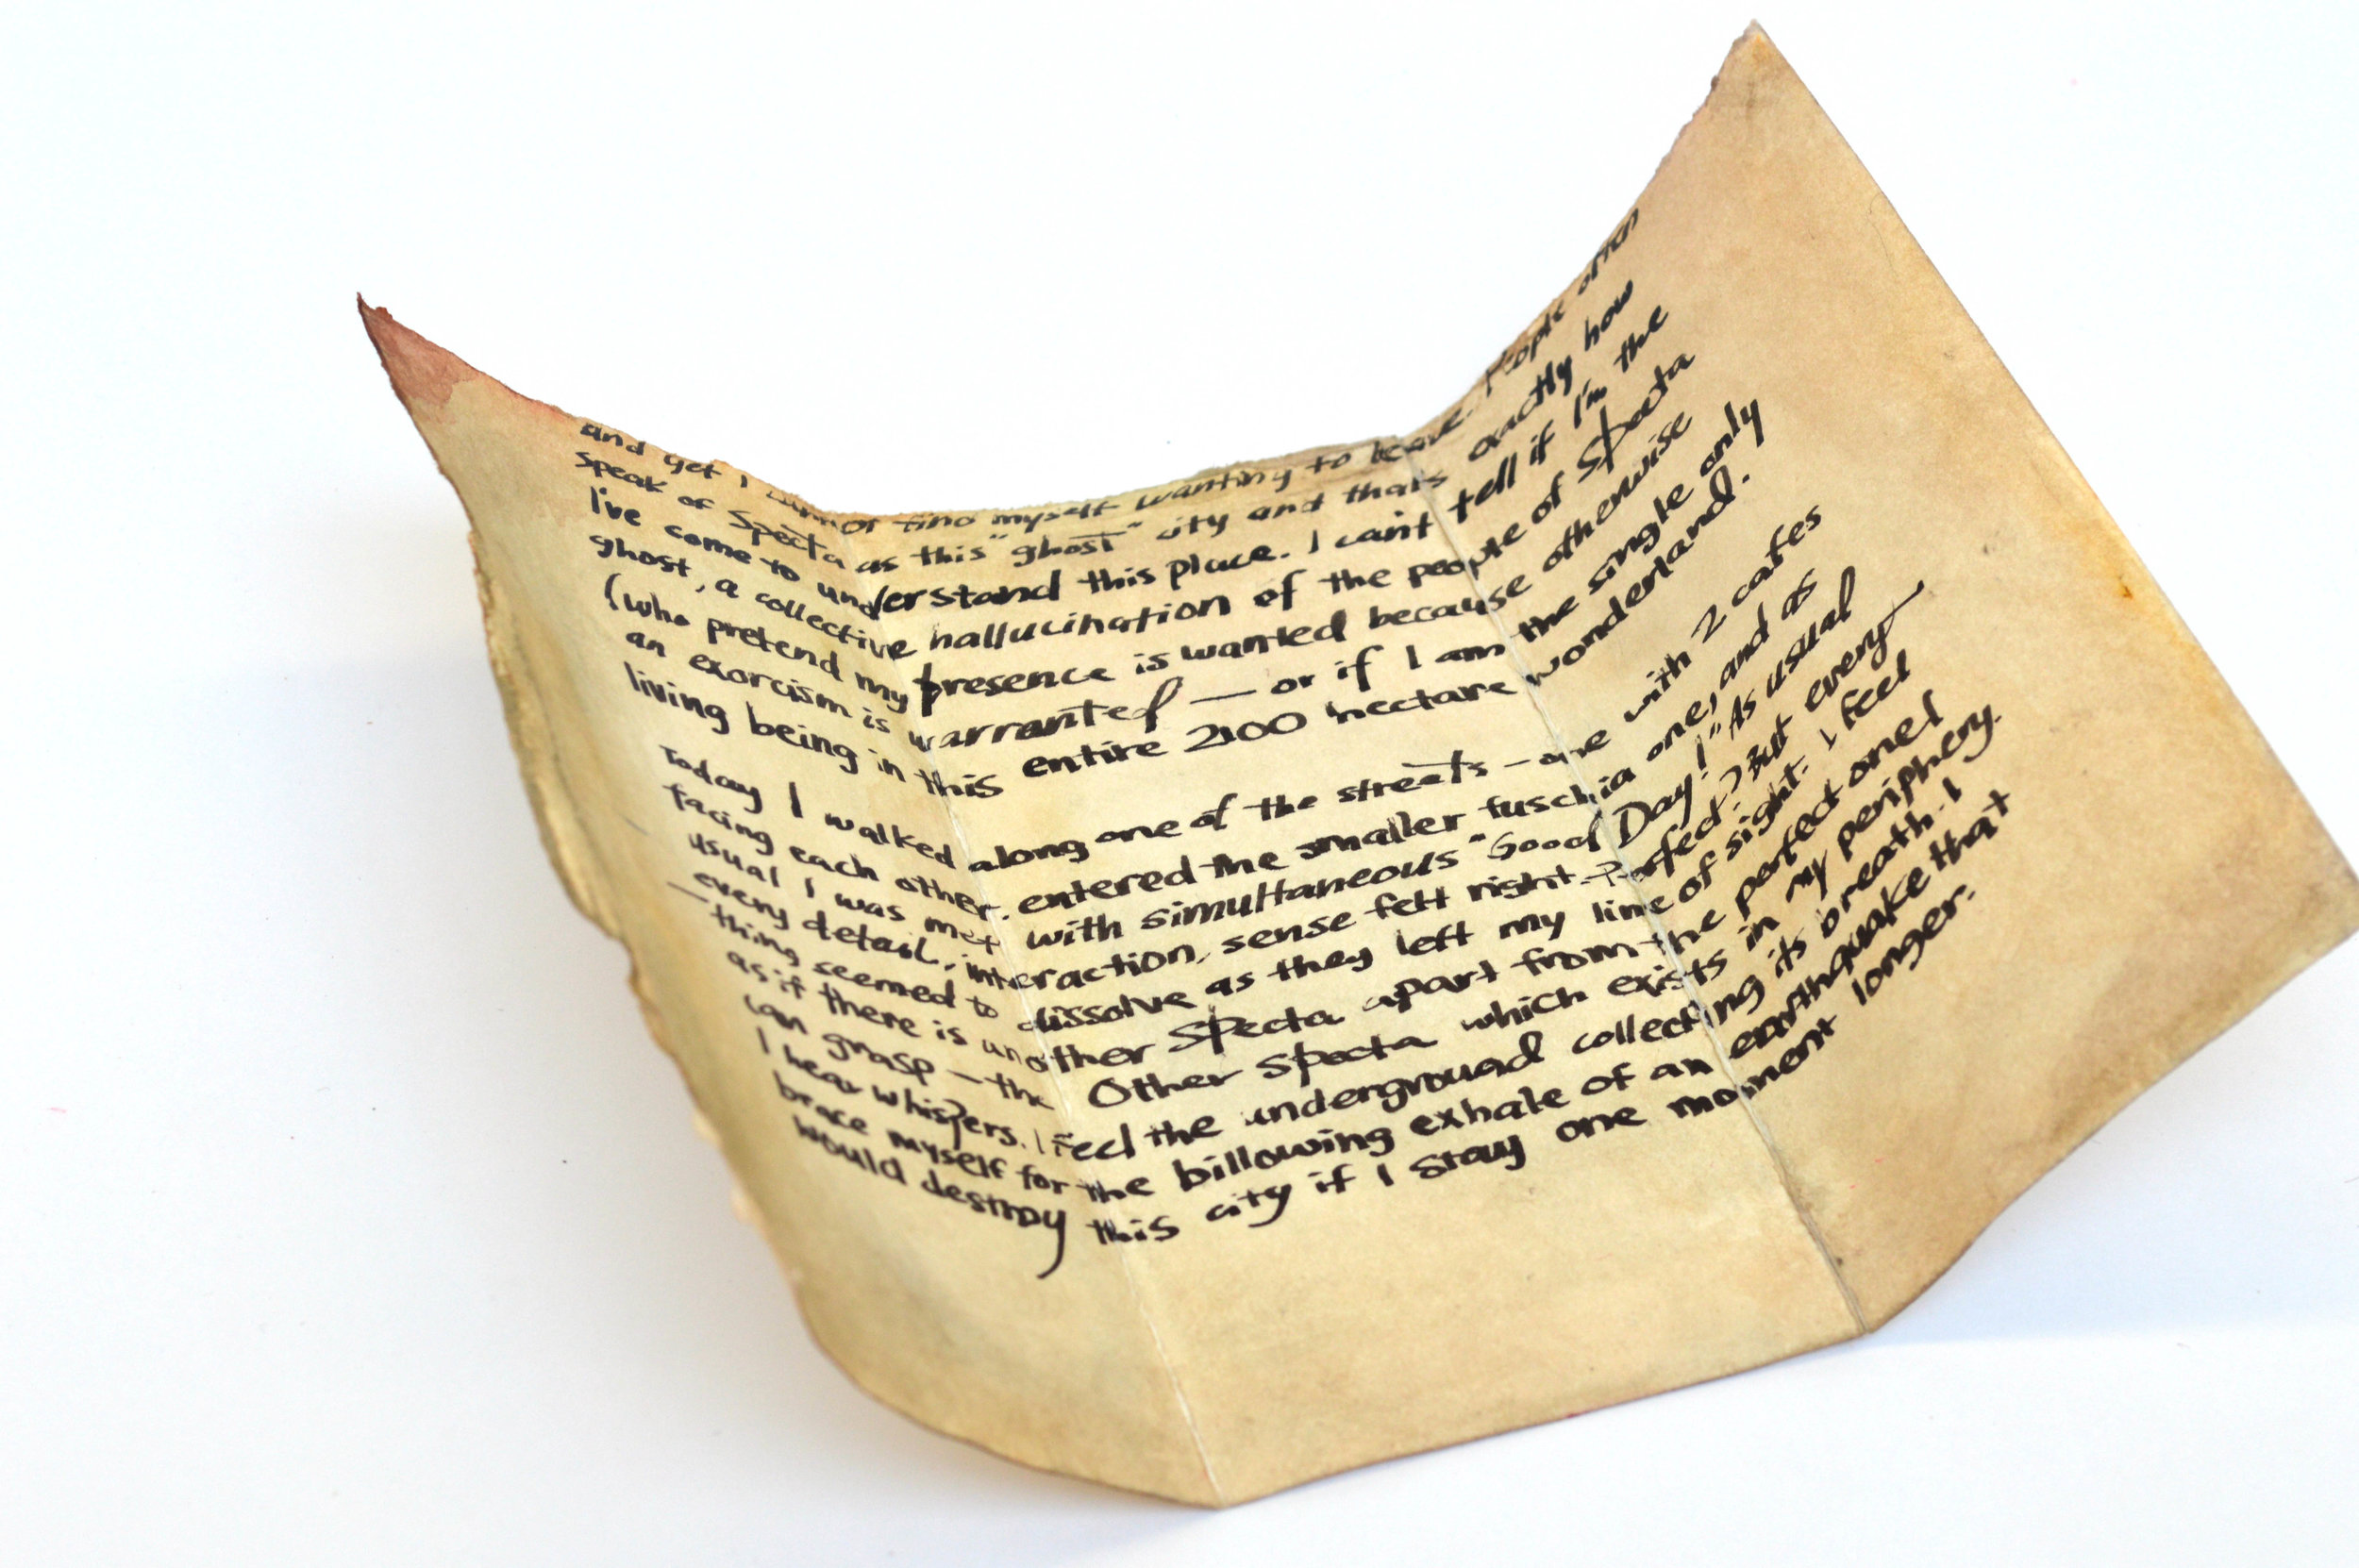 and yet I cannot find myself wanting to leave. People often
speak of Specta as this "ghost" city and thats exactly how
I've come to understand this place. I can't tell if I'm the
ghost, a collective hallucination of the people of Specta
(who pretend my presence is wanted because otherwise
an exorcism is warranted — or if I am the single only
living being in this entire 2100 hectare wonderland.
Today I walked along one of the streets - one with 2 cafes
facing each other, entered the smaller fuschia one, and as
usual I was met with simultaneous "Good Day!" As usual
every detail, interaction, sense felt right. Perfect. But every—
—thing seemed to dissolve as they left my line of sight. I feel
as if there is another Specta apart from the perfect one I
can grasp — the Other Specta which exists in my periphery.
I hear whispers. I feel the undergrouad collecting its breath. I
brace myself for the billowing exhale of an earthquake that
would destroy this city if I stay one moment longer.